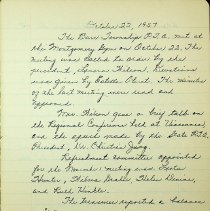 October 22, 1957
The Barr Township P.T.A. met at
the Montgomery Gym on October 22. The
meeting was called to order by the
president, Lenora Hixson. Devotions
was given by Estella Clint. The minutes
of the last meeting were read and
approved.
Mrs. Hixson gave a brief talk on
the Regional Conference held at
and the speech made by the State P.T.A.
President, Mrs. Christian Young.
Refreshment committee appointed
for the November meeting was
and Ruth Hinkle.
The treasurer reported a balance